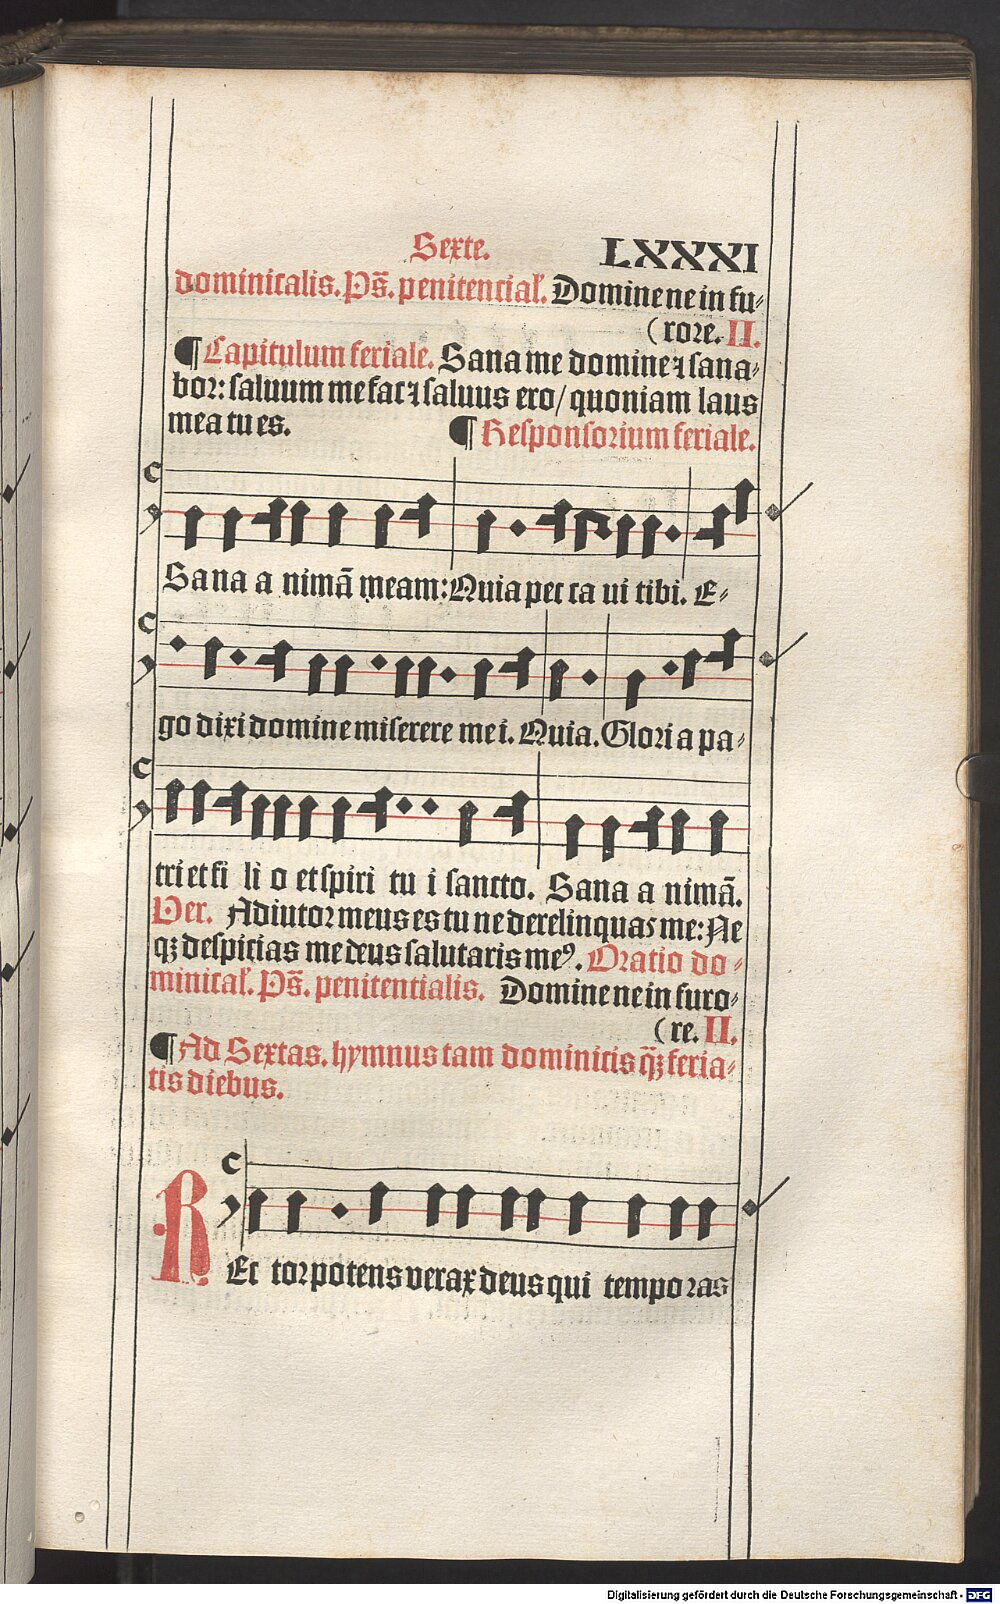 Sexte. LXXXI
dominicalis. Ps̃. penitencial̃. Domine ne in fu⸗
(rore. II.
¶ Capitulum feriale. Sana me domine ⁊ sana⸗
bor: saluum me fac ⁊ saluus ero / quoniam laus
mea tu es. ¶ Responsorium feriale.
Sana a nimã meam: Quia pec ca ui tibi. E⸗
go dixi domine miserere me i. Quia. Glori a pa⸗
tri et fi li o et spiri tu i sancto. Sana a nimã.
Ver. Adiutor meus es tu ne derelinquas me: Ne
qꝫ despicias me deus salutaris meꝰ. Oratio do⸗
minical̃. Ps̃. penitentialis. Domine ne in furo⸗
(re. II.
¶ Ad Sextas. hymnus tam dominicis q̃ꝫ feria⸗
tis diebus.
REc tor potens verax deus qui tempo ras
Digitalisierung gefördert durch die Deutsche Forschungsgemeinschaft - DFG